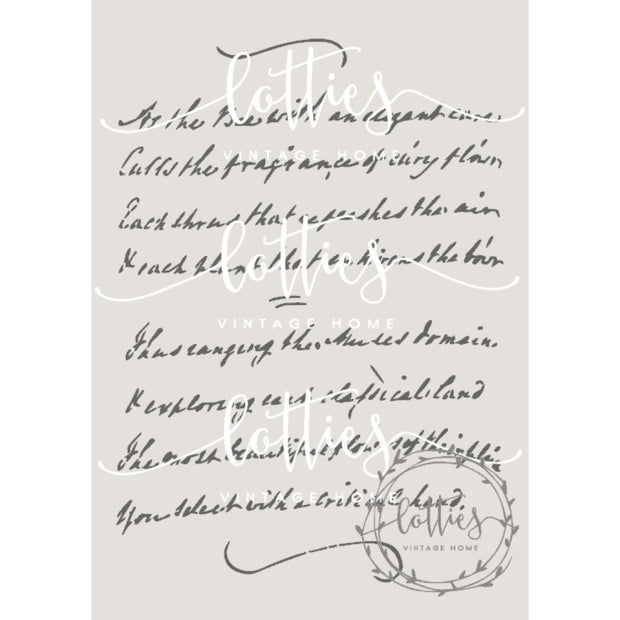 lotties
As the Bee with an elegant care,
VINTAGE HOME
Culls the fragrance of ev'ry flow'r
Each that refreshes the air
lotties
& each plant that the bow'r
VINTAGE HOME
Thus ranging the Muses domain.
& exploring each classical land
lotties
The most beautiful of the
VINTAGE HOME
You select with a critical hand.
lotties
VINTAGE HOME